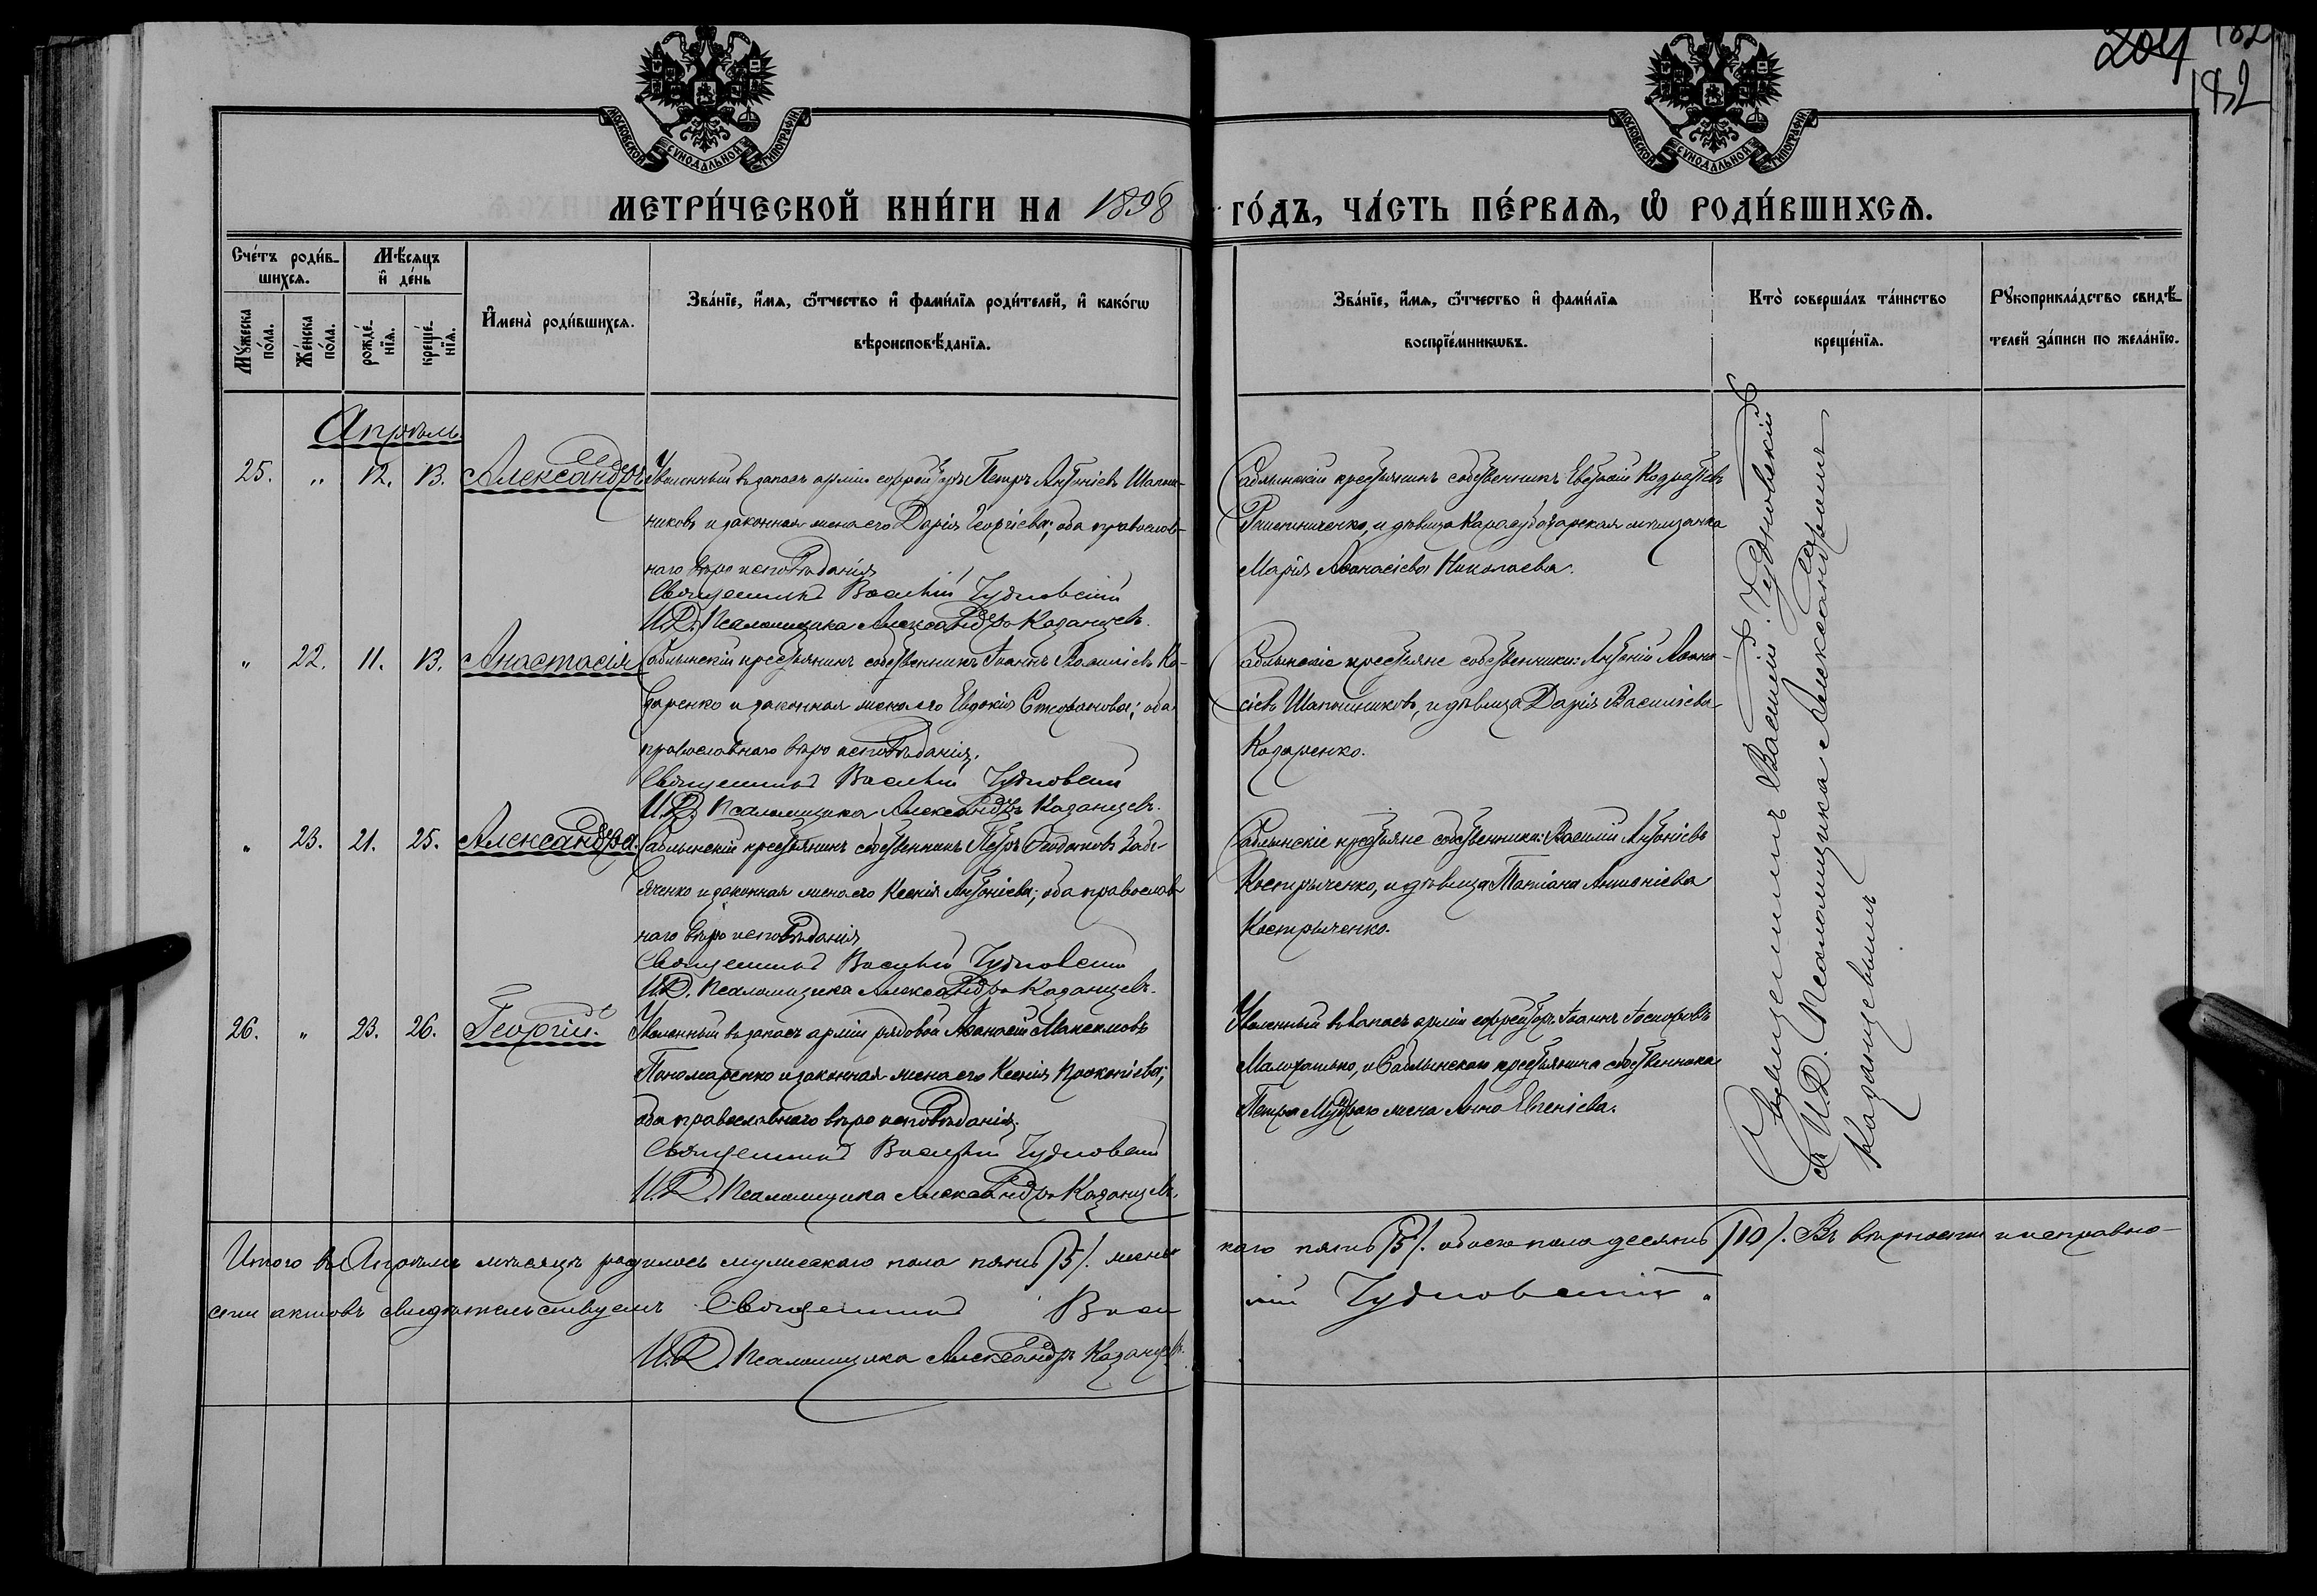 204 182
182
МОСКОВСКОЙ СУНОДАЛЬНОЙ ТИПОГРАФІИ
МОСКОВСКОЙ СУНОДАЛЬНОЙ ТИПОГРАФІИ
МЕТРИ́ЧЕСКОЙ КНИ́ГИ НА 1898 ГО́ДЪ, ЧА́СТЬ ПЕ́РВАЯ, Ѡ҆ РОДИ́ВШИХСЯ.
Сче́тъ роди́в-
шихся.
Му́жеска по́ла.
Же́нска по́ла.
Мѣ́сяцъ и҆ де́нь
рожде́-нїя.
креще́-нїя.
И҆мена̀ роди́вшихся.
Зва́нїе, и҆́мя, ѻ҆́тчество и҆ фами́лїя роди́телей, и҆ како́гѡ
вѣроисповѣ́данїя.
Зва́нїе, и҆́мя, ѻ҆́тчество и҆ фами́лїя
воспрїе́мникѡвъ.
Кто̀ соверша́лъ та́инство
креще́нїя.
Рꙋкоприкла́дство свидѣ́-
телей за́писи по жела́нїю.
Апрѣль
25. " 12. 13. Александръ
Уволенный въ запасъ арміи ефрейторъ Петръ Антоніевъ Шапош-
никовъ и законная жена его Дарія Георгіева; оба православ-
наго вѣроисповѣданія
Священникъ Василій Чудновскій
И.Д. Псаломщика Александръ Казанцевъ.
Саблынскій крестьянинъ собственникъ Евстафій Кодратіевъ
и дѣвица Карасубазарская мѣщанка
Марія Аѳанасіева Николаева.
" 22. 11. 13. Анастасія
Саблынскій крестьянинъ собственникъ Іоаннъ Василіевъ Ко-
заренко и законная жена его Евдокія Стефанова; оба
православнаго вѣроисповѣданія.
Священникъ Василій Чудновскій
И.Д. Псаломщика Александръ Казанцевъ.
Саблынскіе крестьяне собственники: Антоній Аѳана-
сіевъ Шапошниковъ, и дѣвица Дарія Василіева
Козаренко.
" 23. 21. 25. Александра.
Саблынскій крестьянинъ собственникъ Петръ
и законная жена его Ксенія Антоніева; оба православ-
наго вѣроисповѣданія
Священникъ Василій Чудновскій
И.Д. Псаломщика Александръ Казанцевъ.
Саблынскіе крестьяне собственники: Василій Антоніевъ
Костырченко, и дѣвица Татіана Антоніева
Костырченко.
26. " 23. 26. Георгій.
Уволенный въ запасъ арміи рядовой Аѳанасій Максимовъ
Пономаренко и законная жена его Ксенія Прокопіева;
оба православнаго вѣроисповѣданія.
Священникъ Василій Чудновскій
И.Д. Псаломщика Александръ Казанцевъ.
Уволенный въ запасъ арміи ефрейторъ Іоаннъ Іосифовъ
и Саблынскаго крестьянина собственника
Петра Мудраго жена Анна Евгеніева.
Священникъ Василій Чудновскій
съ И.Д. Псаломщика Александромъ
Казанцевымъ
Итого въ Апрѣлѣ мѣсяцѣ родилось мужескаго пола пять /5/. женс
каго пять /5/. обоего пола десять /10/. Въ вѣрности и исправно-
сти актовъ свидѣтельствуемъ Священникъ Васи
лій Чудновскій.
И.Д. Псаломщика Александръ Казанцевъ.